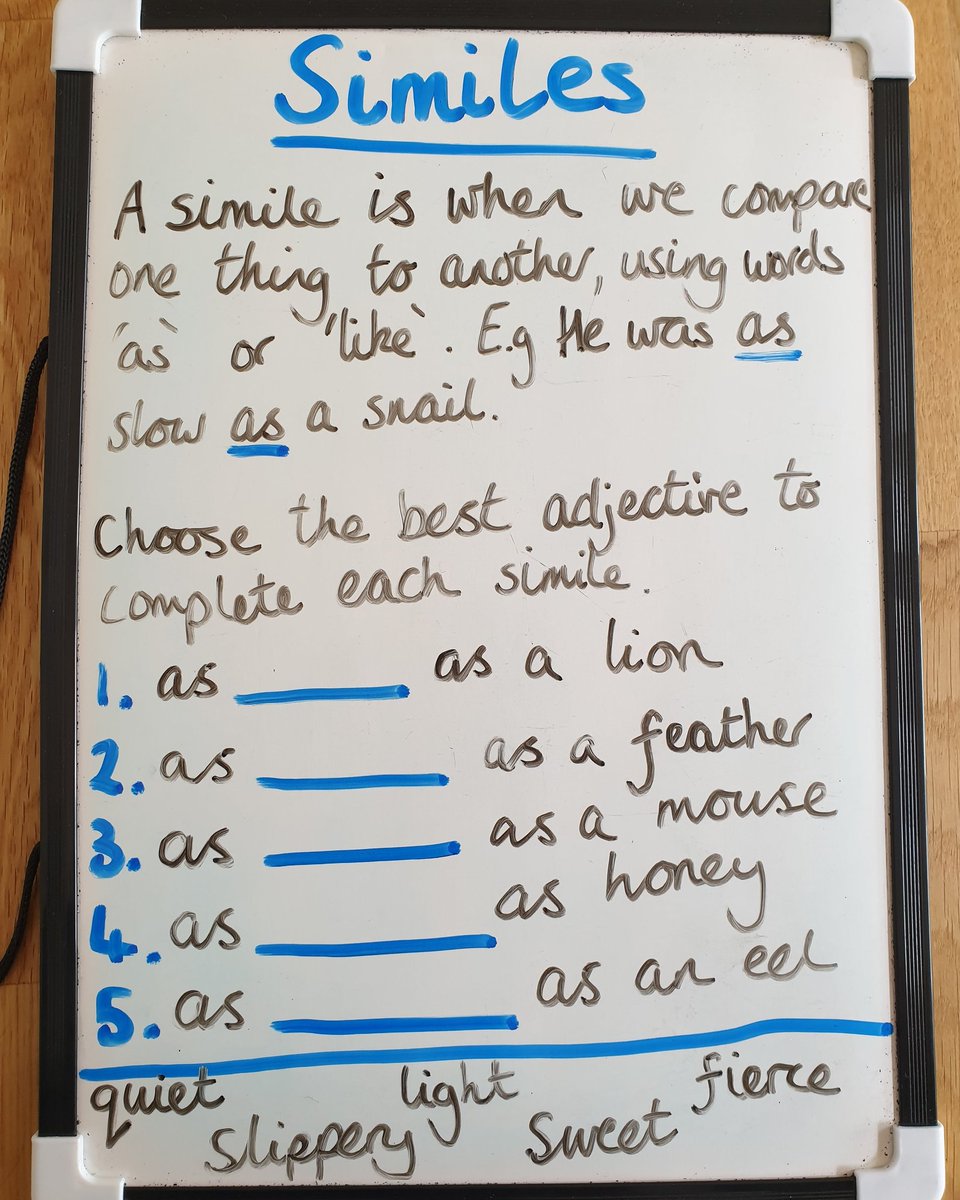 Similes
A simile is when we compare
one thing to another, using words
'as' or 'like'. E.g He was as
slow as a snail.
Choose the best adjective to
complete each simile.
1. as ________ as a lion
2. as ________ as a feather
3. as ________ as a mouse
4. as ________ as honey
5. as ________ as an eel
quiet light fierce
slippery sweet